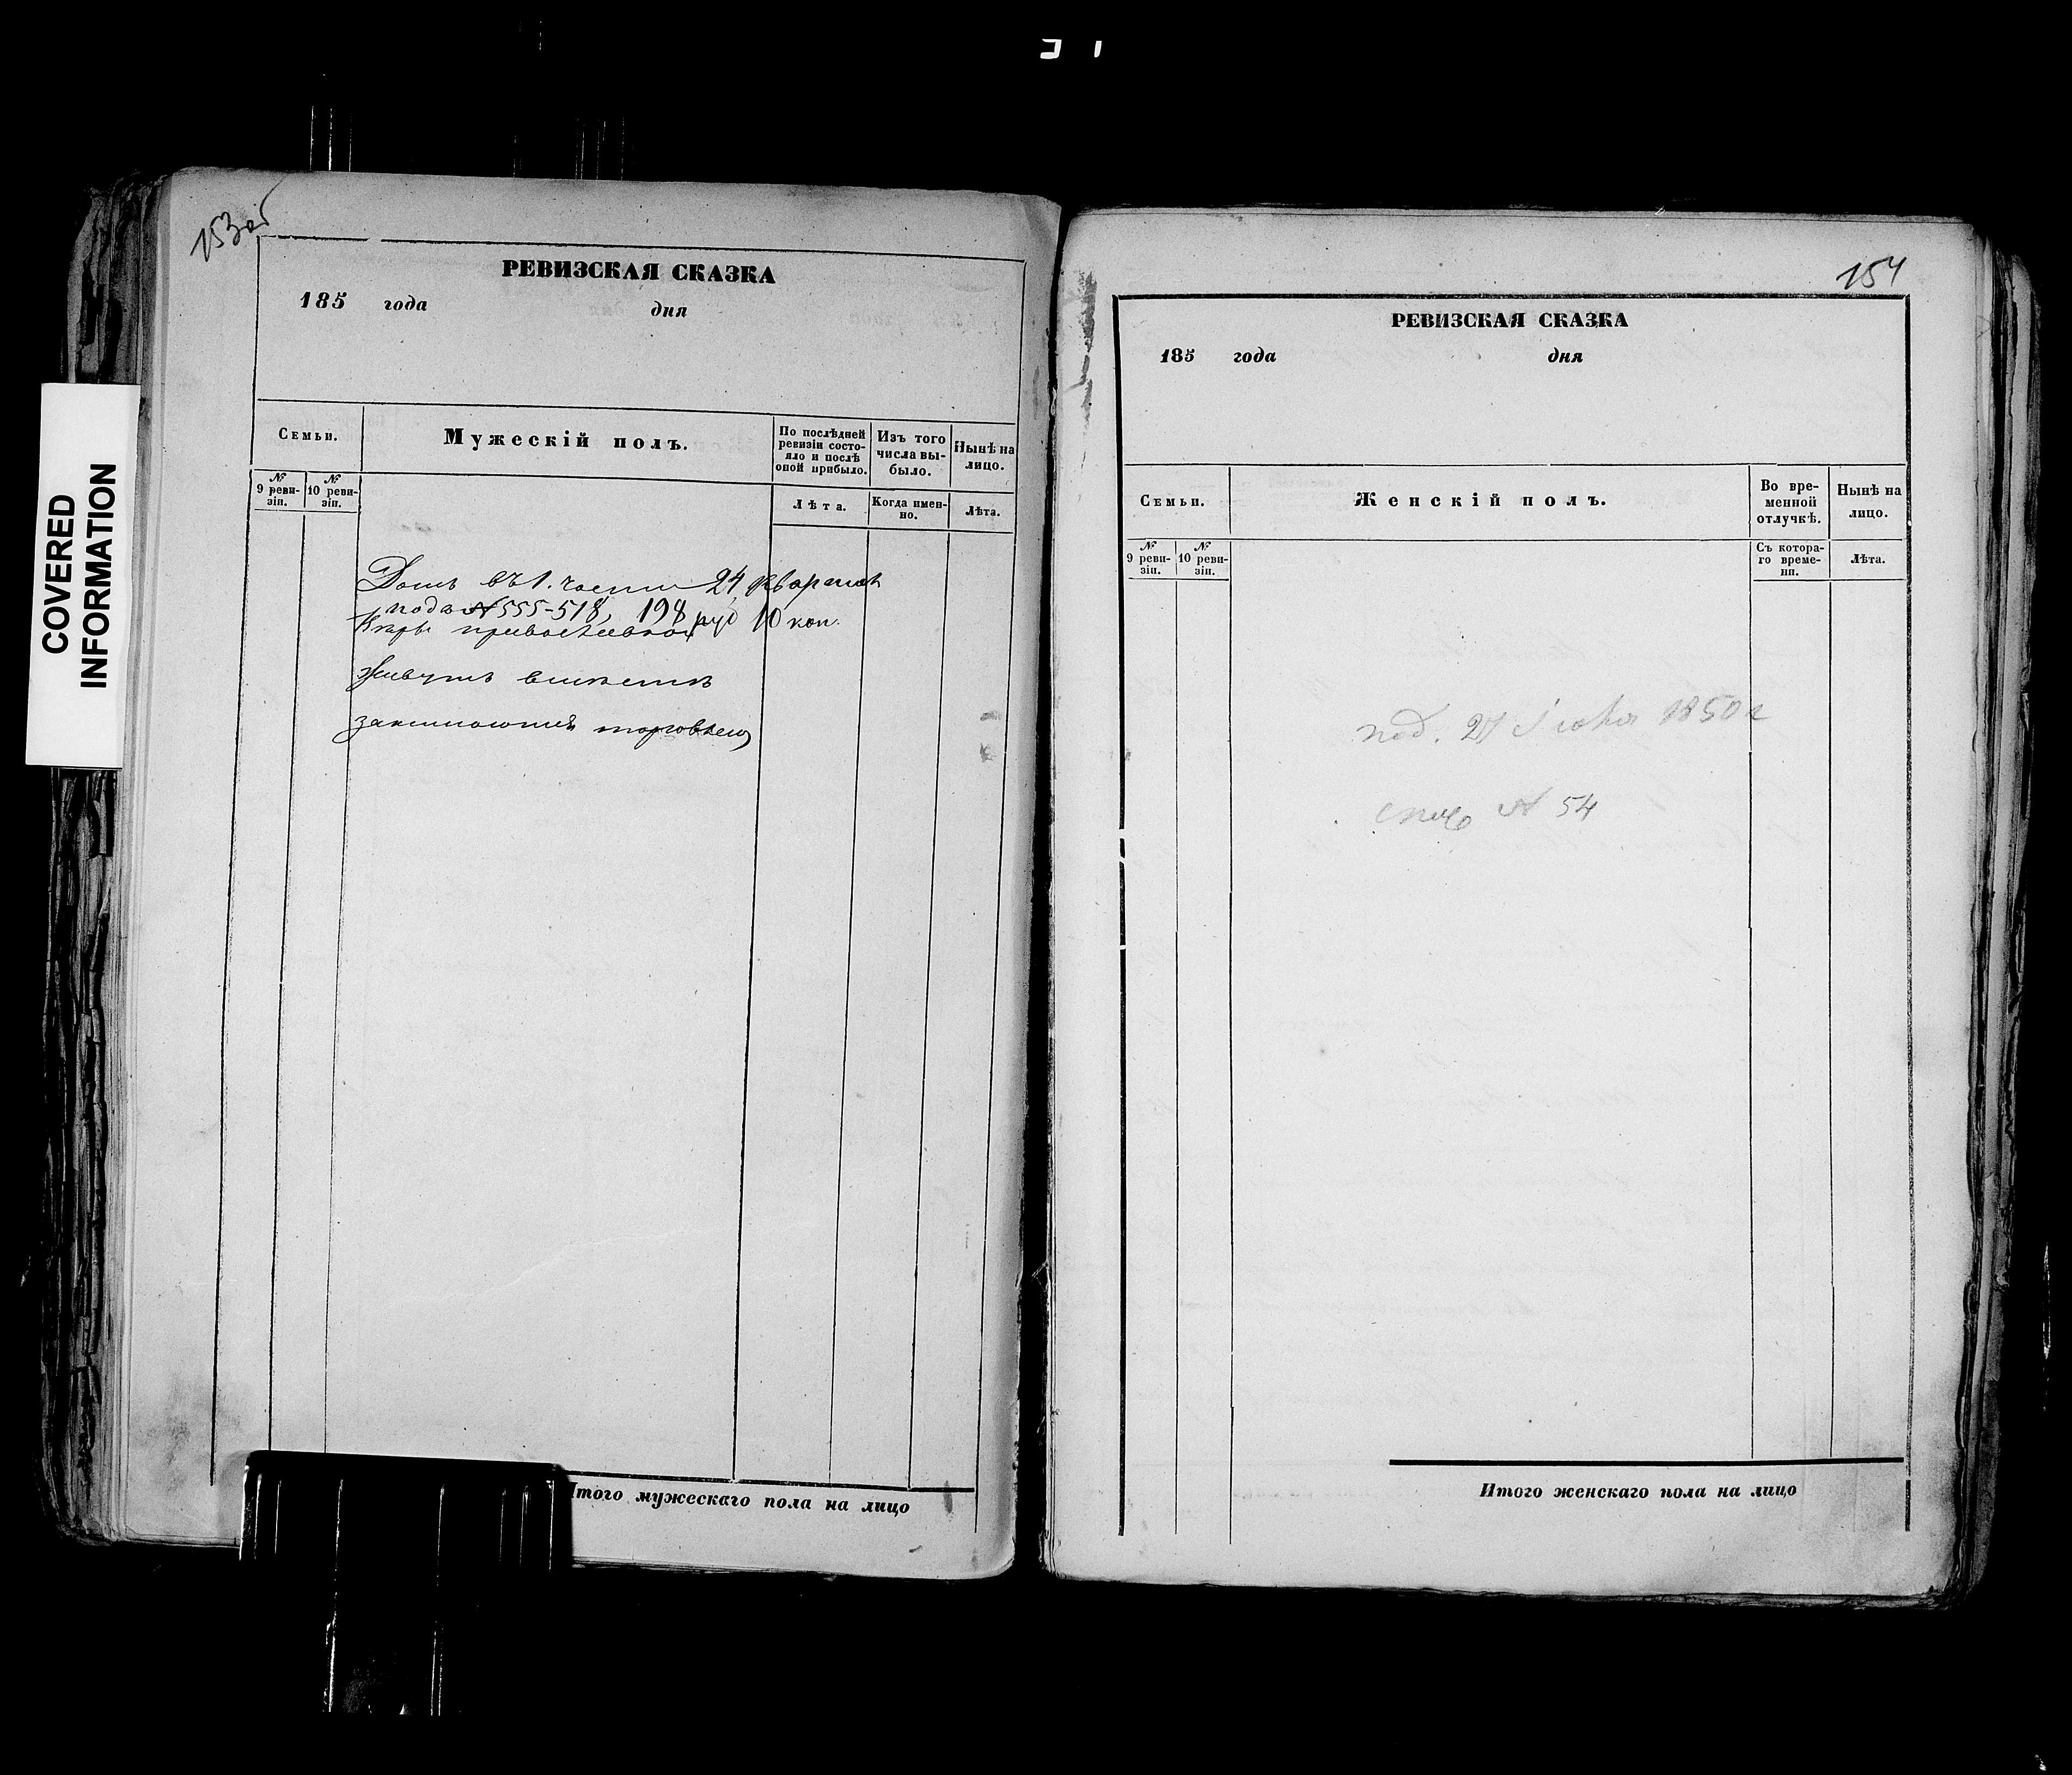 153 об
РЕВИЗСКАЯ СКАЗКА
185 года дня
Семьи.
Мужескій полъ.
По послѣдней ревизіи состояло и послѣ оной прибыло.
Изъ того числа выбыло.
Нынѣ на лицо.
№ 9 ревизіи.
№ 10 ревизіи.
Лѣта.
Когда именно.
Лѣта.
Домъ въ 1. части 24 квартал
подъ № 555-518, 198 руб 10 коп.
Вѣры
Живутъ вмѣстѣ
занимаются торговлею
Итого мужескаго пола на лицо
COVERED
INFORMATION
154
РЕВИЗСКАЯ СКАЗКА
185 года дня
Семьи.
Женскій полъ.
Во временной отлучкѣ.
Нынѣ на лицо.
№ 9 ревизіи.
№ 10 ревизіи.
Съ котораго времени.
Лѣта.
под. 27 1850 г
№ 54
Итого женскаго пола на лицо